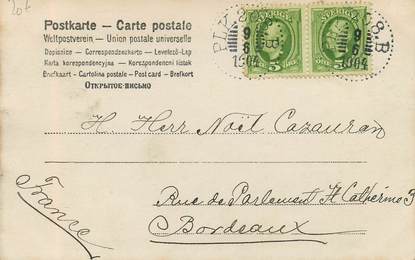 20f
Postkarte — Carte postale
Weltpostverein — Union postale universelle
Dopisnice — Correspondenzkarte — Levelező-Lap
Karta korespondencyjna — Korespondenční lístek
Briefkaart — Cartolina postale — Post card — Brefkort
ОТКРЫТОЕ-ПИСЬМО
SVERIGE SVERIGE
5 ÖRE 5 ÖRE
9
6
1904
9
6
1904
H. Herr Noël Cazauran
Rue de Parlement St Catherine 3
Bordeaux
France